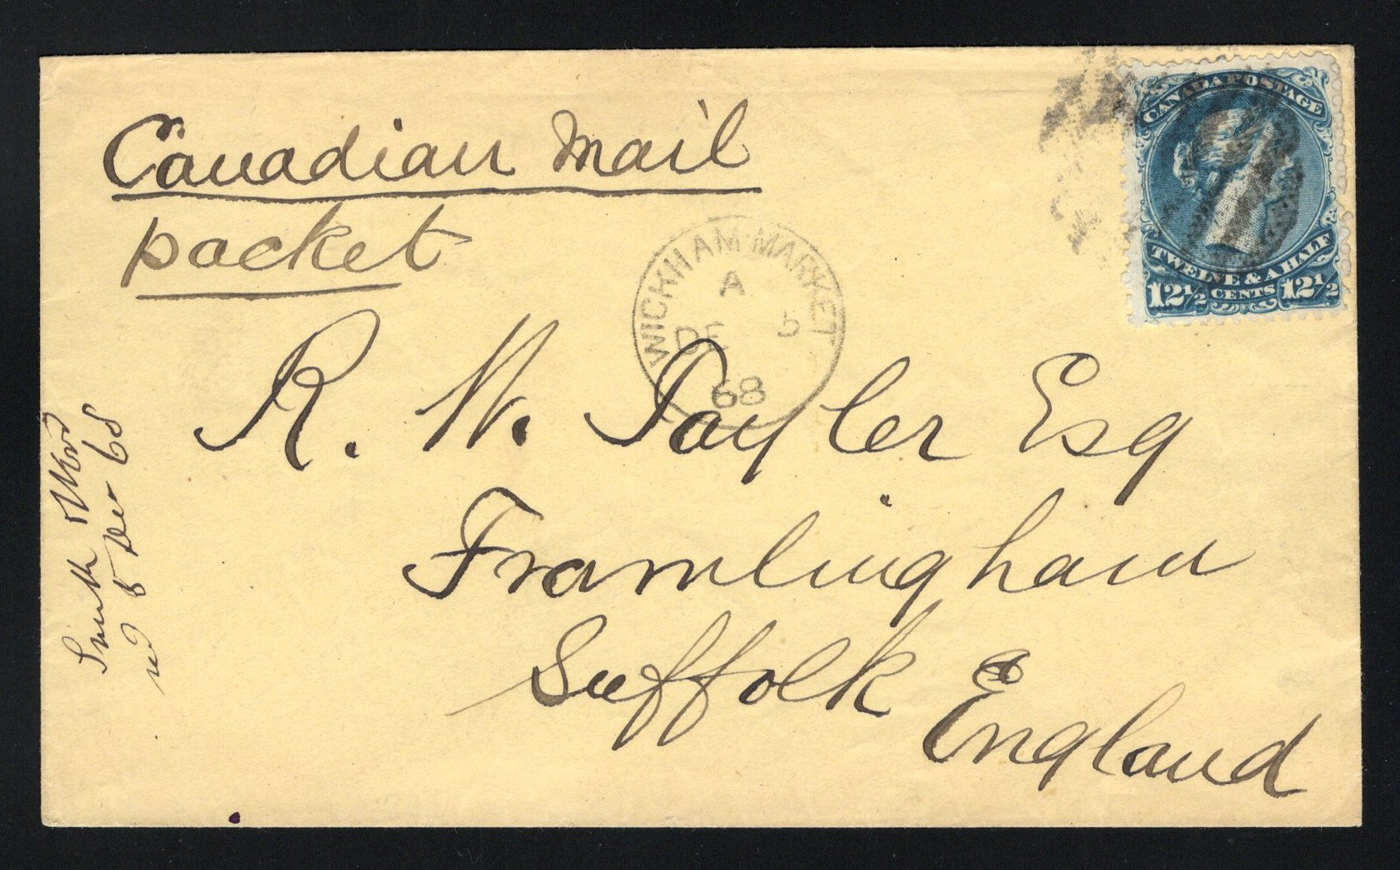 Canadian Mail
packet
CANADA POSTAGE
TWELVE & A HALF
12½ CENTS 12½
WICKHAM-MARKET
A
DE 5
68
R. W. Tayler Esq
Framlingham
Suffolk
England
Smith
5 Dec 68